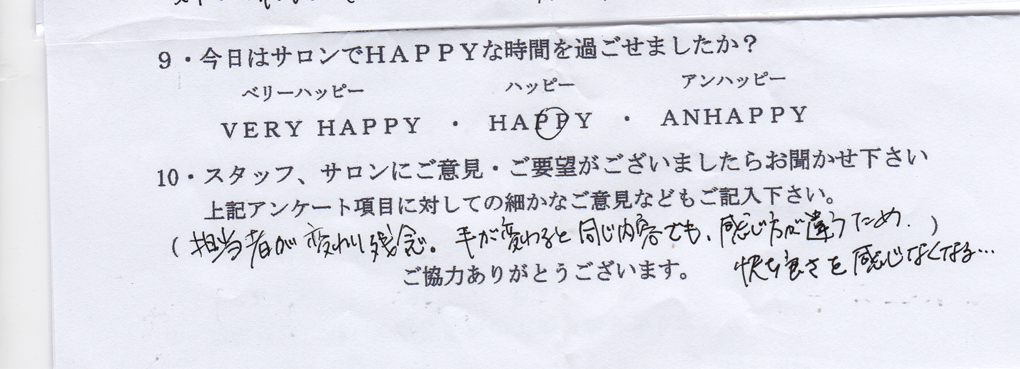 9・今日はサロンでHAPPYな時間を過ごせましたか？
ベリーハッピー　ハッピー　アンハッピー
VERY HAPPY ・ HAPPY ・ ANHAPPY
10・スタッフ、サロンにご意見・ご要望がございましたらお聞かせ下さい
上記アンケート項目に対しての細かなご意見などもご記入下さい。
（担当者が変わり残念。手が変わると同じ内容でも、感じ方が違うため.）
ご協力ありがとうございます。
快さを感じなくなる…